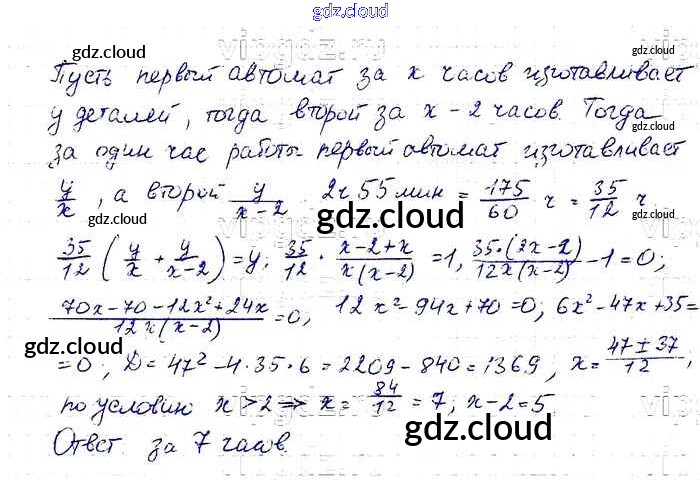 gdz.cloud
gdz.cloud
gdz.cloud
Пусть первый автомат за x часов изготавливает
gdz.cloud
y деталей, тогда второй за x - 2 часов. Тогда
gdz.cloud
за один час работы первый автомат изготавливает
y/x, а второй y/(x-2). 2ч 55 мин = 175/60 ч = 35/12 ч.
gdz.cloud
gdz.cloud
35/12 (y/x + y/(x-2)) = y; 35/12 · (x-2+x)/(x(x-2)) = 1, 35·(2x-2)/(12x(x-2)) - 1 = 0;
(70x-70-12x²+24x)/(12x(x-2)) = 0, 12x²-94x+70=0; 6x²-47x+35=
gdz.cloud
gdz.cloud
=0; D=47²-4·35·6=2209-840=1369, x=(47±37)/12,
по условию x>2 ⇒ x = 84/12 = 7; x-2=5.
gdz.cloud
Ответ. за 7 часов.
gdz.cloud